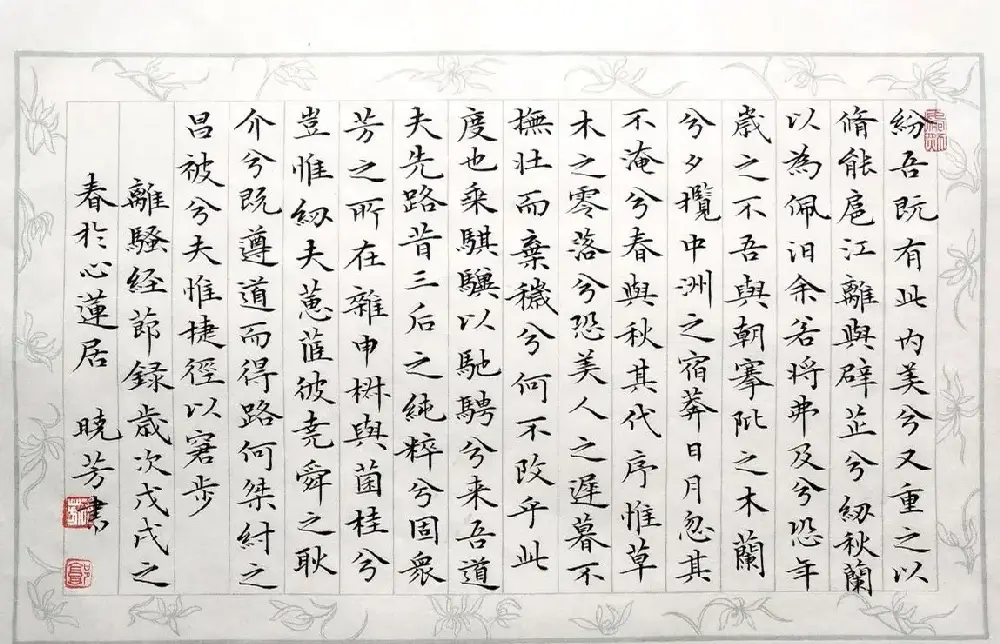 紛吾既有此内美兮又重之以
脩能扈江離與辟芷兮紉秋蘭
以為佩汨余若將弗及兮恐年
歲之不吾與朝搴阰之木蘭
兮夕攬中洲之宿莽日月忽其
不淹兮春與秋其代序惟草
木之零落兮恐美人之遲暮不
撫壯而棄穢兮何不改乎此
度也乘騏驥以馳騁兮来吾道
夫先路昔三后之純粹兮固衆
芳之所在雜申椒與菌桂兮
豈惟紉夫蕙茝彼堯舜之耿
介兮既遵道而得路何桀紂之
昌被兮夫惟捷徑以窘步
離騷経節録歲次戊戌之
春於心蓮居 曉芳書